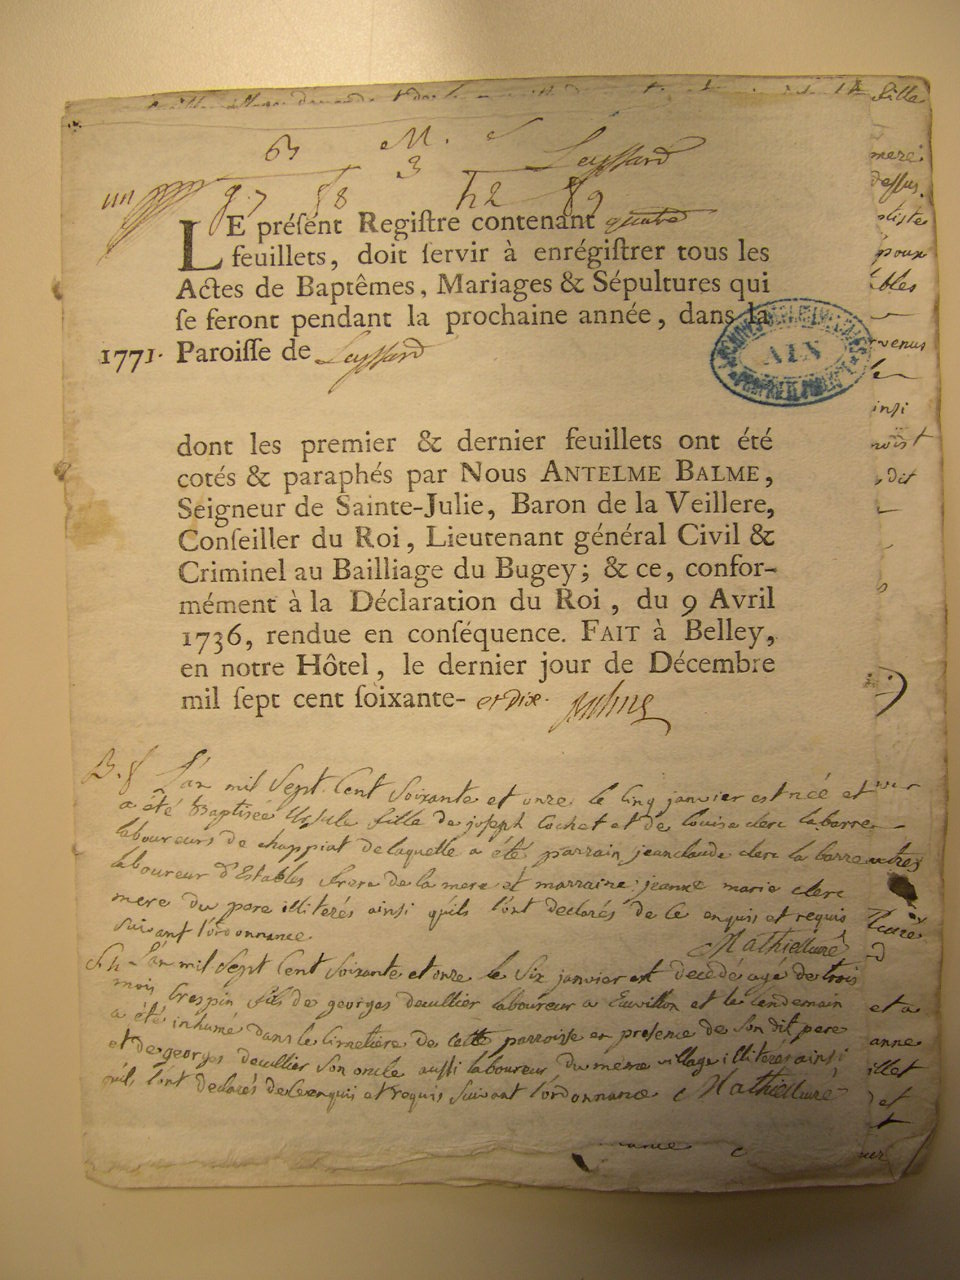 B M. S Leyssard
3
un g.7 f8 h2 f9
LE préſent Regiſtre contenant quatre
feuillets, doit ſervir à enrégiſtrer tous les
Actes de Baptêmes, Mariages & Sépultures qui
ſe feront pendant la prochaine année, dans la
1771. Paroiſſe de Leyssard
AIN
dont les premier & dernier feuillets ont été
cotés & paraphés par NOUS ANTELME BALME,
Seigneur de Sainte-Julie, Baron de la Veillere,
Conſeiller du Roi, Lieutenant général Civil &
Criminel au Bailliage du Bugey; & ce, confor-
mément à la Déclaration du Roi, du 9 Avril
1736, rendue en conſéquence. FAIT à Belley,
en notre Hôtel, le dernier jour de Décembre
mil ſept cent ſoixante- et dix. Balme
B. f L'an mil sept Cent soixante et onze le cinq janvier est née et
a été Baptisée Ursule fille de joseph Cochet et de louise clerc la barre
laboureurs de chappiat de laquelle a été parrain jeanclaude clerc la barre
laboureur d'Estables frere de la mere et marraine jeanne marie clerc
mere du pere illiterés ainsi qu'ils l'ont declarés de ce enquis et requis
suivant l'ordonnance Mathieu curé
S. h L'an mil sept Cent soixante et onze le six janvier est decedé agé de trois
mois Crespin fils de georges decullier laboureur a et le lendemain
a été inhumé dans le Cimetiere de cette parroisse en presence de son dit pere
et de georges decullier son oncle aussi laboureur du meme village illiterés ainsi
qu'ils l'ont declarés de ce enquis et requis suivant l'ordonnance Mathieu curé
fille
mere
dessus
poux
bles
venus
insi
dit
et a
anne
illet
et